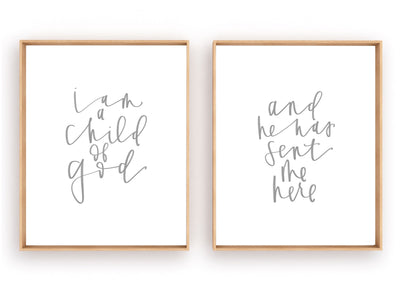 i am
a
child
of
god
and
he has
sent
me
here